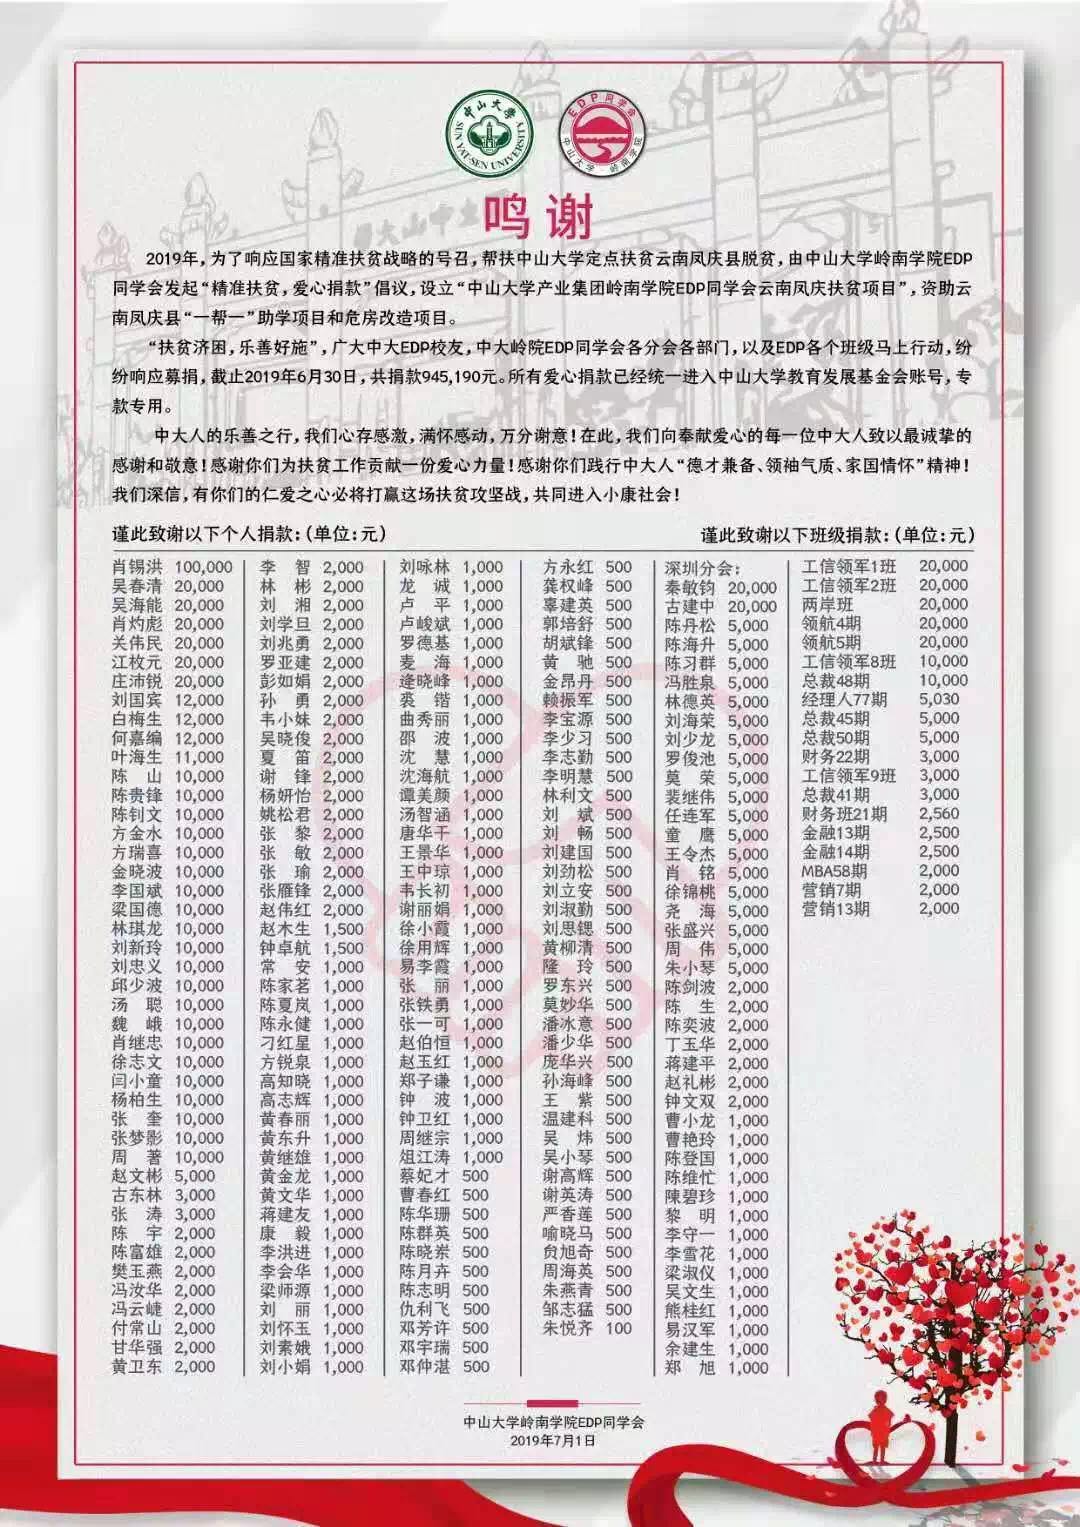 中山大学
SUN YAT-SEN UNIVERSITY
EDP同学会
中山大学·岭南学院
鸣谢
2019年，为了响应国家精准扶贫战略的号召，帮扶中山大学定点扶贫云南凤庆县脱贫，由中山大学岭南学院EDP
同学会发起“精准扶贫，爱心捐款”倡议，设立“中山大学产业集团岭南学院EDP同学会云南凤庆扶贫项目”，资助云
南凤庆县“一帮一”助学项目和危房改造项目。
“扶贫济困，乐善好施”，广大中大EDP校友，中大岭院EDP同学会各分会各部门，以及EDP各个班级马上行动，纷
纷响应募捐，截止2019年6月30日，共捐款945,190元。所有爱心捐款已经统一进入中山大学教育发展基金会账号，专
款专用。
中大人的乐善之行，我们心存感激，满怀感动，万分谢意！在此，我们向奉献爱心的每一位中大人致以最诚挚的
感谢和敬意！感谢你们为扶贫工作贡献一份爱心力量！感谢你们践行中大人“德才兼备、领袖气质、家国情怀”精神！
我们深信，有你们的仁爱之心必将打赢这场扶贫攻坚战，共同进入小康社会！
谨此致谢以下个人捐款：（单位：元）
肖锡洪 100,000
吴春清 20,000
吴海能 20,000
肖灼彪 20,000
关伟民 20,000
江枚元 20,000
庄沛锐 20,000
刘国宾 12,000
白梅生 12,000
何嘉编 12,000
叶海生 11,000
陈 山 10,000
陈贵锋 10,000
陈钊文 10,000
方金水 10,000
方瑞喜 10,000
金晓波 10,000
李国斌 10,000
梁国德 10,000
林琪龙 10,000
刘新玲 10,000
刘忠义 10,000
邱少波 10,000
汤 聪 10,000
魏 峨 10,000
肖继忠 10,000
徐志文 10,000
闫小童 10,000
杨柏生 10,000
张 奎 10,000
张梦影 10,000
周 著 10,000
赵文彬 5,000
古东林 3,000
张 涛 3,000
陈 宇 2,000
陈富雄 2,000
樊玉燕 2,000
冯汝华 2,000
冯云崨 2,000
付常山 2,000
甘华强 2,000
黄卫东 2,000
李 智 2,000
林 彬 2,000
刘 湘 2,000
刘学旦 2,000
刘兆勇 2,000
罗亚建 2,000
彭如娟 2,000
孙 勇 2,000
韦小妹 2,000
吴晓俊 2,000
夏 笛 2,000
谢 锋 2,000
杨妍怡 2,000
姚松君 2,000
张 黎 2,000
张 敏 2,000
张 瑜 2,000
张雁锋 2,000
赵伟红 2,000
赵木生 1,500
钟卓航 1,500
常 安 1,000
陈家茗 1,000
陈夏岚 1,000
陈永健 1,000
刁红星 1,000
方锐泉 1,000
高知晓 1,000
高志辉 1,000
黄春丽 1,000
黄东升 1,000
黄继雄 1,000
黄金龙 1,000
黄文华 1,000
蒋建友 1,000
康 毅 1,000
李洪进 1,000
李会华 1,000
梁师源 1,000
刘 丽 1,000
刘怀玉 1,000
刘素娥 1,000
刘小娟 1,000
刘咏林 1,000
龙 诚 1,000
卢 平 1,000
卢峻斌 1,000
罗德基 1,000
麦 海 1,000
逄晓峰 1,000
裘 锴 1,000
曲秀丽 1,000
邵 波 1,000
沈 慧 1,000
沈海航 1,000
谭美颜 1,000
汤智涵 1,000
唐华干 1,000
王景华 1,000
王中琼 1,000
韦长初 1,000
谢丽娟 1,000
徐小霞 1,000
徐用辉 1,000
易李霞 1,000
张 丽 1,000
张铁勇 1,000
张一可 1,000
赵伯恒 1,000
赵玉红 1,000
郑子谦 1,000
钟 波 1,000
钟卫红 1,000
周继宗 1,000
俎江涛 1,000
蔡妃才 500
曹春红 500
陈华珊 500
陈群英 500
陈晓岽 500
陈月卉 500
陈志明 500
仇利飞 500
邓芳许 500
邓宇瑞 500
邓仲湛 500
方永红 500
龚权峰 500
辜建英 500
郭培舒 500
胡斌锋 500
黄 驰 500
金昂丹 500
赖振军 500
李宝源 500
李少习 500
李志勤 500
李明慧 500
林利文 500
刘 斌 500
刘 畅 500
刘建国 500
刘劲松 500
刘立安 500
刘淑勤 500
刘思锶 500
黄柳清 500
隆 玲 500
罗东兴 500
莫妙华 500
潘冰意 500
潘少华 500
庞华兴 500
孙海峰 500
王 紫 500
温建科 500
吴 炜 500
吴小琴 500
谢高辉 500
谢英涛 500
严香莲 500
喻晓马 500
贠旭奇 500
周海英 500
朱燕青 500
邹志猛 500
朱悦齐 100
谨此致谢以下班级捐款：（单位：元）
深圳分会：
秦敏钧 20,000
古建中 20,000
陈丹松 5,000
陈海升 5,000
陈习群 5,000
冯胜泉 5,000
林德英 5,000
刘海荣 5,000
刘少龙 5,000
罗俊池 5,000
莫 荣 5,000
裴继伟 5,000
任连军 5,000
童 鹰 5,000
王令杰 5,000
肖 铭 5,000
徐锦桃 5,000
尧 海 5,000
张盛兴 5,000
周 伟 5,000
朱小琴 5,000
陈剑波 2,000
陈 生 2,000
陈奕波 2,000
丁玉华 2,000
蒋建平 2,000
赵礼彬 2,000
钟文双 2,000
曹小龙 1,000
曹艳玲 1,000
陈登国 1,000
陈维忙 1,000
陳碧珍 1,000
黎 明 1,000
李守一 1,000
李雪花 1,000
梁淑仪 1,000
吴文生 1,000
熊桂红 1,000
易汉军 1,000
余建生 1,000
郑 旭 1,000
工信领军1班 20,000
工信领军2班 20,000
两岸班 20,000
领航4期 20,000
领航5期 20,000
工信领军8班 10,000
总裁48期 10,000
经理人77期 5,030
总裁45期 5,000
总裁50期 5,000
财务22期 3,000
工信领军9班 3,000
总裁41期 3,000
财务班21期 2,560
金融13期 2,500
金融14期 2,500
MBA58期 2,000
营销7期 2,000
营销13期 2,000
中山大学岭南学院EDP同学会
2019年7月1日